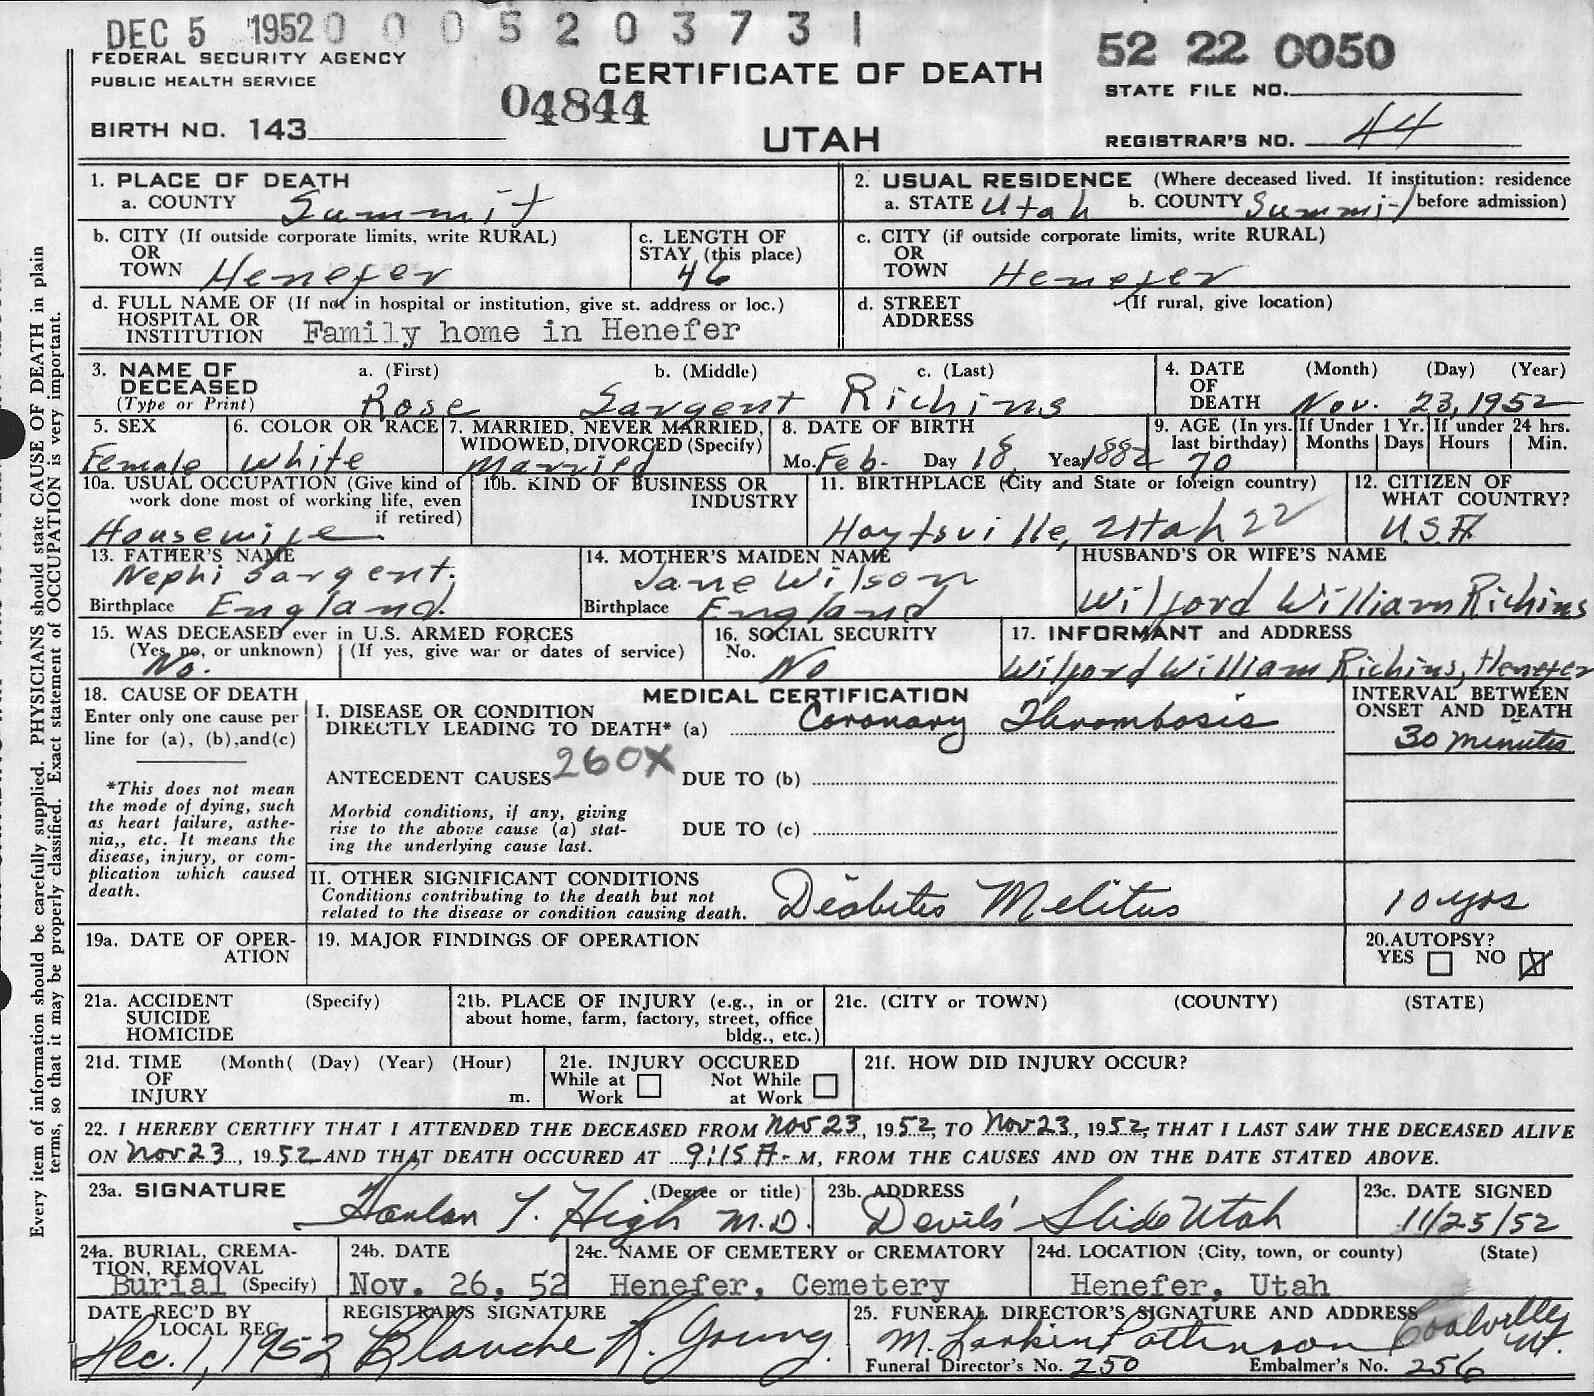 DEC 5 1952 0 0 0 5 2 0 3 7 3 1
FEDERAL SECURITY AGENCY
PUBLIC HEALTH SERVICE
CERTIFICATE OF DEATH
52 22 0050
STATE FILE NO.
04844
BIRTH NO. 143
UTAH
REGISTRAR'S NO. 44
Every item of information should be carefully supplied. PHYSICIANS should state CAUSE OF DEATH in plain
terms, so that it may be properly classified. Exact statement of OCCUPATION is very important.
1. PLACE OF DEATH
a. COUNTY Summit
2. USUAL RESIDENCE (Where deceased lived. If institution: residence
a. STATE Utah b. COUNTY Summit before admission)
b. CITY (If outside corporate limits, write RURAL)
OR
TOWN Henefer
c. LENGTH OF
STAY (this place)
46
c. CITY (if outside corporate limits, write RURAL)
OR
TOWN Henefer
d. FULL NAME OF (If not in hospital or institution, give st. address or loc.)
HOSPITAL OR
INSTITUTION Family home in Henefer
d. STREET (If rural, give location)
ADDRESS
3. NAME OF a. (First) b. (Middle) c. (Last)
DECEASED
(Type or Print) Rose Sargent Richins
4. DATE (Month) (Day) (Year)
OF
DEATH Nov. 23, 1952
5. SEX
Female
6. COLOR OR RACE
White
7. MARRIED, NEVER MARRIED,
WIDOWED, DIVORCED (Specify)
Married
8. DATE OF BIRTH
Mo. Feb. Day 18, Year 1882
9. AGE (In yrs. last birthday)
70
If Under 1 Yr.
Months Days
If under 24 hrs.
Hours Min.
10a. USUAL OCCUPATION (Give kind of
work done most of working life, even
if retired)
Housewife
10b. KIND OF BUSINESS OR
INDUSTRY
11. BIRTHPLACE (City and State or foreign country)
Hoytsville, Utah 22
12. CITIZEN OF
WHAT COUNTRY?
U.S.A.
13. FATHER'S NAME
Nephi Sargent.
Birthplace England.
14. MOTHER'S MAIDEN NAME
Jane Wilson
Birthplace England
HUSBAND'S OR WIFE'S NAME
Wilford William Richins
15. WAS DECEASED ever in U.S. ARMED FORCES
(Yes, no, or unknown) (If yes, give war or dates of service)
No.
16. SOCIAL SECURITY
No. No
17. INFORMANT and ADDRESS
Wilford William Richins, Henefer
18. CAUSE OF DEATH
Enter only one cause per
line for (a), (b),and(c)
*This does not mean
the mode of dying, such
as heart failure, asthe-
nia,, etc. It means the
disease, injury, or com-
plication which caused
death.
MEDICAL CERTIFICATION
I. DISEASE OR CONDITION
DIRECTLY LEADING TO DEATH* (a) Coronary Thrombosis
INTERVAL BETWEEN
ONSET AND DEATH
30 minutes
ANTECEDENT CAUSES 260X DUE TO (b)
Morbid conditions, if any, giving
rise to the above cause (a) stat-
ing the underlying cause last.
DUE TO (c)
II. OTHER SIGNIFICANT CONDITIONS
Conditions contributing to the death but not
related to the disease or condition causing death.
Diabetis Melitus 10 yrs
19a. DATE OF OPER-
ATION
19. MAJOR FINDINGS OF OPERATION
20. AUTOPSY?
YES NO X
21a. ACCIDENT (Specify)
SUICIDE
HOMICIDE
21b. PLACE OF INJURY (e.g., in or
about home, farm, factory, street, office
bldg., etc.)
21c. (CITY or TOWN) (COUNTY) (STATE)
21d. TIME (Month( (Day) (Year) (Hour)
OF
INJURY m.
21e. INJURY OCCURED
While at Work Not While at Work
21f. HOW DID INJURY OCCUR?
22. I HEREBY CERTIFY THAT I ATTENDED THE DECEASED FROM Nov 23, 1952, TO Nov 23, 1952, THAT I LAST SAW THE DECEASED ALIVE
ON Nov 23, 1952 AND THAT DEATH OCCURED AT 9:15 A-M, FROM THE CAUSES AND ON THE DATE STATED ABOVE.
23a. SIGNATURE (Degree or title)
Harlan T. High M.D.
23b. ADDRESS
Devils' Slide Utah
23c. DATE SIGNED
11/25/52
24a. BURIAL, CREMA-
TION, REMOVAL
Burial (Specify)
24b. DATE
Nov. 26, 52
24c. NAME OF CEMETERY or CREMATORY
Henefer, Cemetery
24d. LOCATION (City, town, or county) (State)
Henefer, Utah
DATE REC'D BY
LOCAL REG.
Dec. 1, 1952
REGISTRAR'S SIGNATURE
Blanche R. Young.
25. FUNERAL DIRECTOR'S SIGNATURE AND ADDRESS
M. Larkin Pattinson Coalville Ut.
Funeral Director's No. 250 Embalmer's No. 256